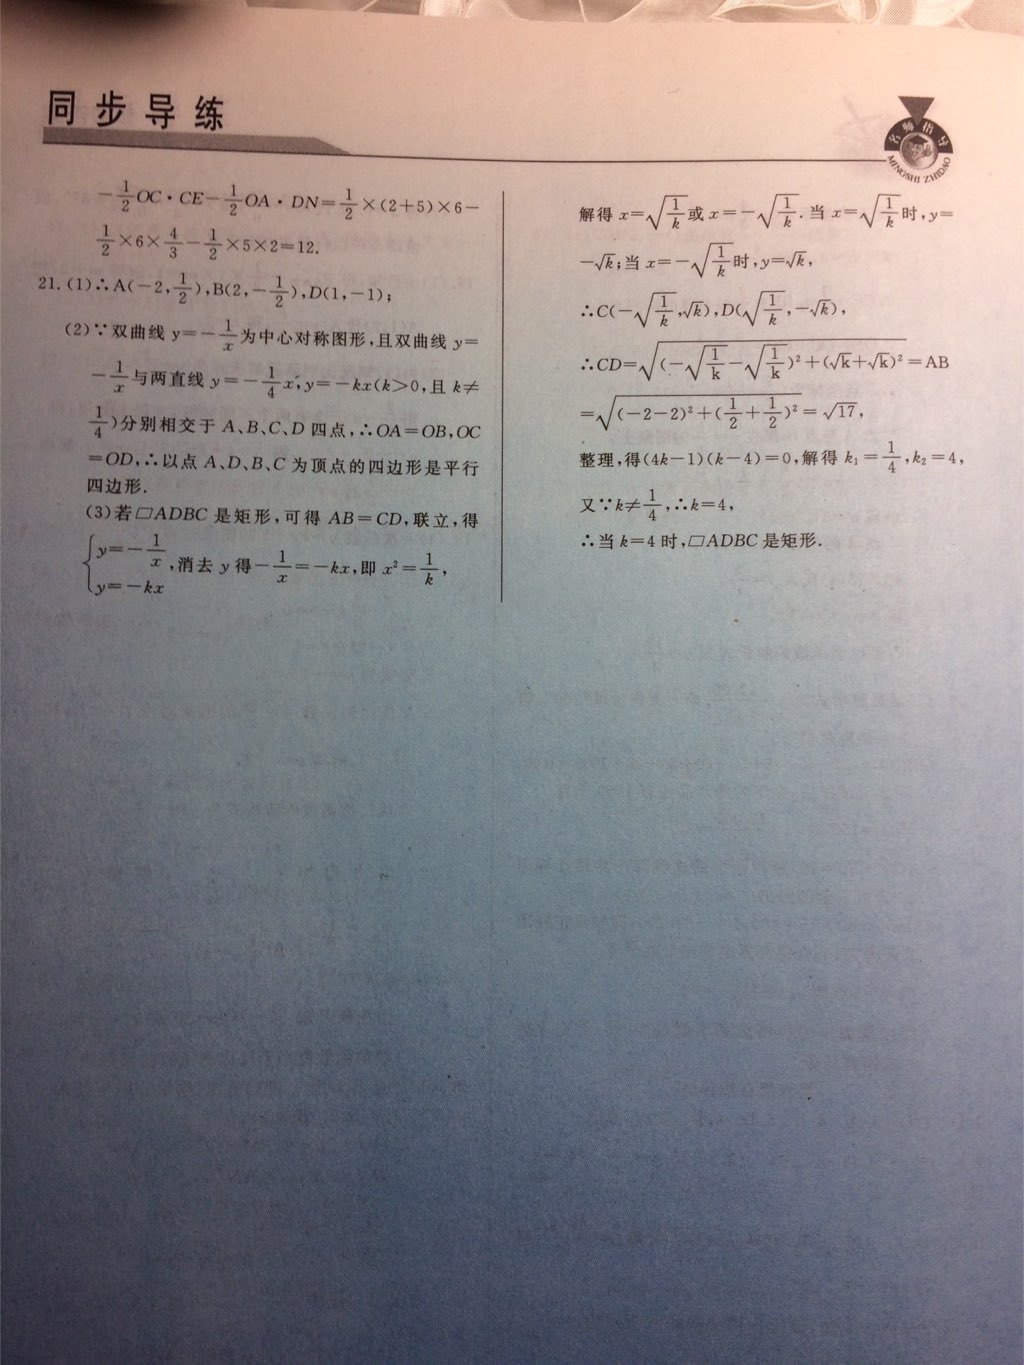 同步导练
名师指导
MINGSHI ZHIDAO
-1/2 OC·CE-1/2 OA·DN=1/2×(2+5)×6-
1/2×6×4/3-1/2×5×2=12.
21.(1)∴A(-2,1/2),B(2,-1/2),D(1,-1);
(2)∵双曲线 y=-1/x为中心对称图形,且双曲线 y=
-1/x与两直线 y=-1/4 x,y=-kx(k>0,且 k≠
1/4)分别相交于 A、B、C、D 四点,∴OA=OB,OC
=OD,∴以点 A、D、B、C 为顶点的四边形是平行
四边形.
(3)若▱ADBC 是矩形,可得 AB=CD,联立,得
{y=-1/x
y=-kx ,消去 y 得-1/x=-kx,即 x²=1/k,
解得 x=√(1/k)或 x=-√(1/k).当 x=√(1/k)时,y=
-√k;当 x=-√(1/k)时,y=√k,
∴C(-√(1/k),√k),D(√(1/k),-√k),
∴CD=√((-√(1/k)-√(1/k))²+(√k+√k)²)=AB
=√((-2-2)²+(1/2+1/2)²)=√17,
整理,得(4k-1)(k-4)=0,解得 k₁=1/4,k₂=4,
又∵k≠1/4,∴k=4,
∴当 k=4 时,▱ADBC 是矩形.